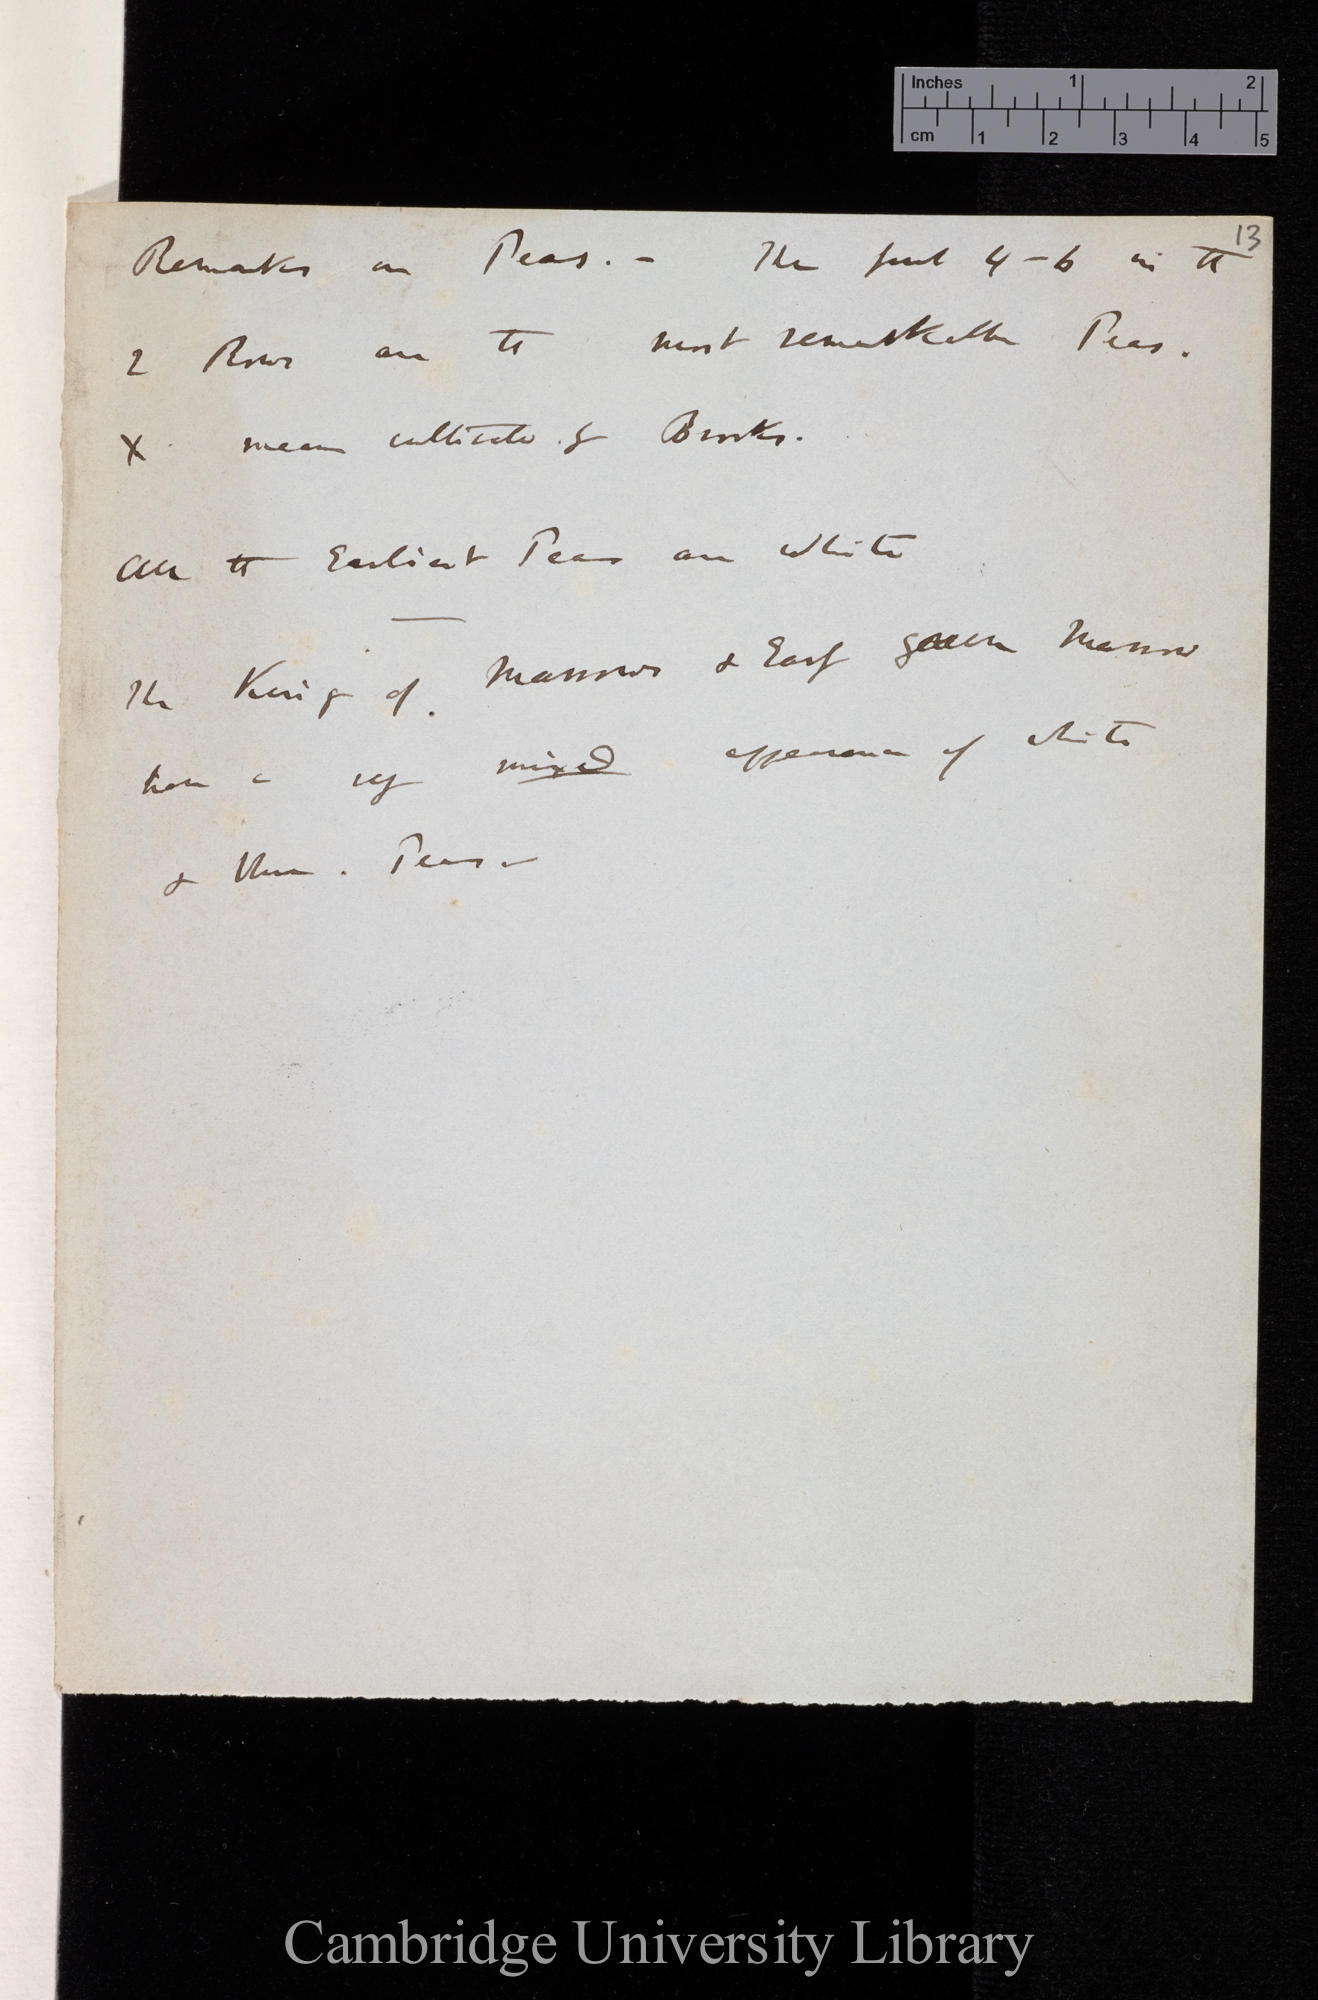 Inches 1 2
cm 1 2 3 4 5
13
Remarks on Peas. – The first 4–6 in the
2 Rows are the most remarkable Peas.
X mean cultivated by Brooks.
All the Earliest Peas are white
The King of Marrows & Early green Marrow
have a very mixed appearance of white
& blue. Peas –
Cambridge University Library